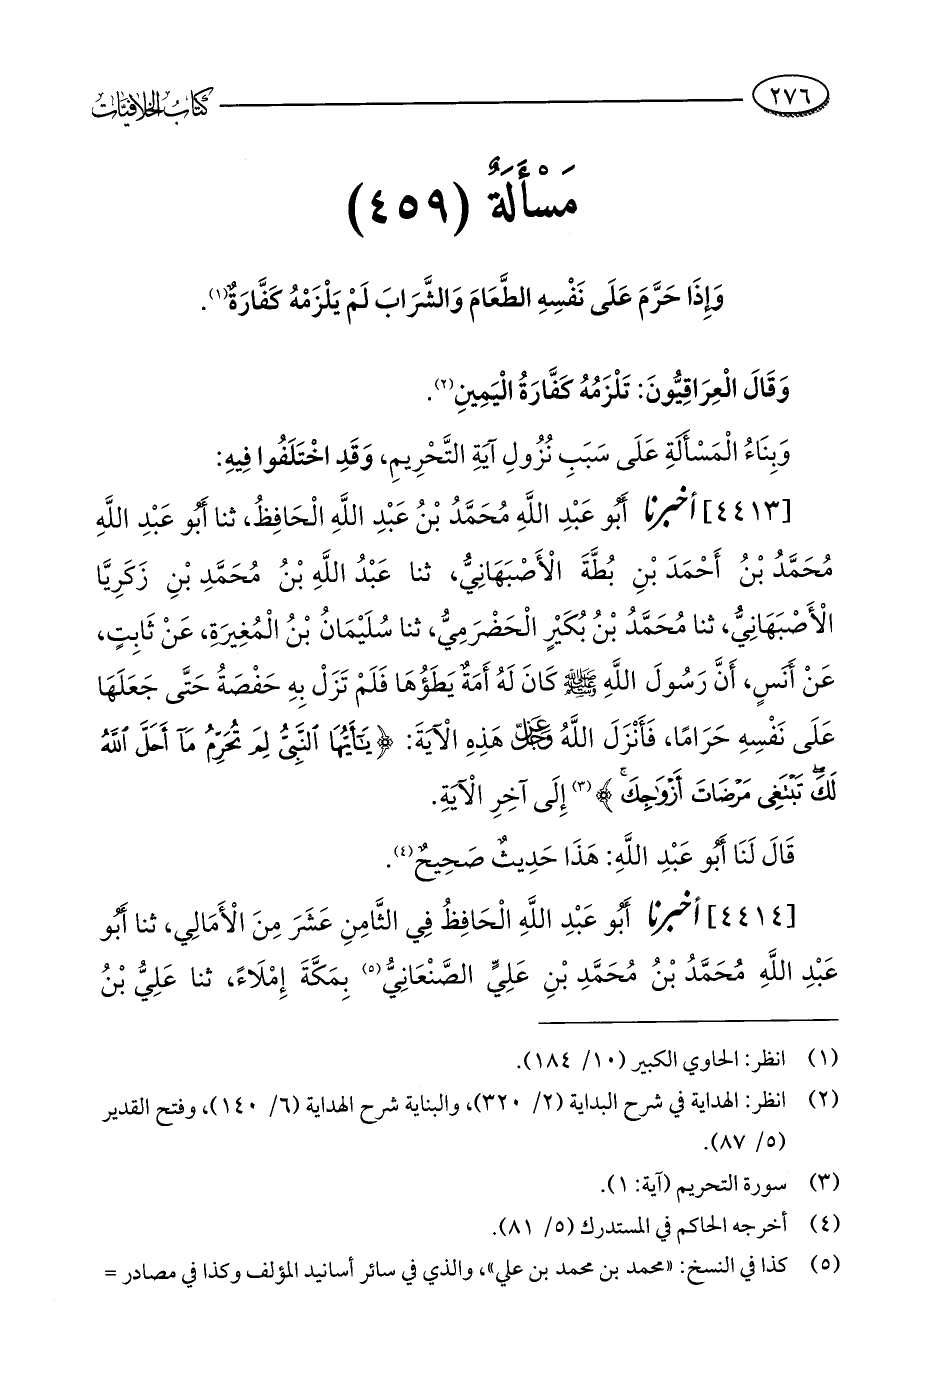 ٢٧٦ كتاب الخلافيات
مَسْأَلَةٌ (٤٥٩)
وَإِذَا حَرَّمَ عَلَى نَفْسِهِ الطَّعَامَ وَالشَّرَابَ لَمْ يَلْزَمْهُ كَفَّارَةٌ(١).
وَقَالَ الْعِرَاقِيُّونَ: تَلْزَمُهُ كَفَّارَةُ الْيَمِينِ(٢).
وَبِنَاءُ الْمَسْأَلَةِ عَلَى سَبَبِ نُزُولِ آيَةِ التَّحْرِيمِ، وَقَدِ اخْتَلَفُوا فِيهِ:
[٤٤١٣] أخبرنا أَبُو عَبْدِ اللَّهِ مُحَمَّدُ بْنُ عَبْدِ اللَّهِ الْحَافِظُ، ثنا أَبُو عَبْدِ اللَّهِ
مُحَمَّدُ بْنُ أَحْمَدَ بْنِ بُطَّةَ الْأَصْبَهَانِيُّ، ثنا عَبْدُ اللَّهِ بْنُ مُحَمَّدِ بْنِ زَكَرِيَّا
الْأَصْبَهَانِيُّ، ثنا مُحَمَّدُ بْنُ بُكَيْرٍ الْحَضْرَمِيُّ، ثنا سُلَيْمَانُ بْنُ الْمُغِيرَةِ، عَنْ ثَابِتٍ،
عَنْ أَنَسٍ، أَنَّ رَسُولَ اللَّهِ ﷺ كَانَ لَهُ أَمَةٌ يَطَؤُهَا فَلَمْ تَزَلْ بِهِ حَفْصَةُ حَتَّى جَعَلَهَا
عَلَى نَفْسِهِ حَرَامًا، فَأَنْزَلَ اللَّهُ عَزَّ وَجَلَّ هَذِهِ الْآيَةَ: ﴿يَٰٓأَيُّهَا ٱلنَّبِىُّ لِمَ تُحَرِّمُ مَآ أَحَلَّ ٱللَّهُ
لَكَ ۖ تَبْتَغِى مَرْضَاتَ أَزْوَٰجِكَ ۚ﴾(٣) إِلَى آخِرِ الْآيَةِ.
قَالَ لَنَا أَبُو عَبْدِ اللَّهِ: هَذَا حَدِيثٌ صَحِيحٌ(٤).
[٤٤١٤] أخبرنا أَبُو عَبْدِ اللَّهِ الْحَافِظُ فِي الثَّامِنِ عَشَرَ مِنَ الْأَمَالِي، ثنا أَبُو
عَبْدِ اللَّهِ مُحَمَّدُ بْنُ مُحَمَّدِ بْنِ عَلِيٍّ الصَّنْعَانِيُّ(٥) بِمَكَّةَ إِمْلَاءً، ثنا عَلِيُّ بْنُ
(١) انظر: الحاوي الكبير (١٠/ ١٨٤).
(٢) انظر: الهداية في شرح البداية (٢/ ٣٢٠)، والبناية شرح الهداية (٦/ ١٤٠)، وفتح القدير
(٥/ ٨٧).
(٣) سورة التحريم (آية: ١).
(٤) أخرجه الحاكم في المستدرك (٥/ ٨١).
(٥) كذا في النسخ: «محمد بن محمد بن علي»، والذي في سائر أسانيد المؤلف وكذا في مصادر =